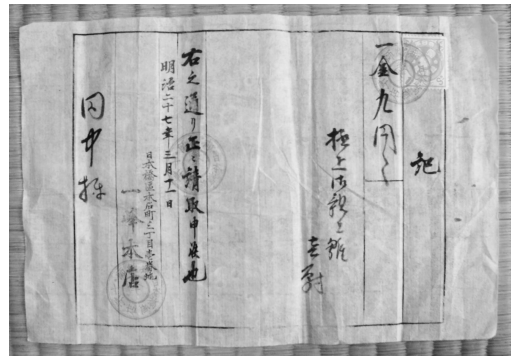 記
一金九円也
極上御親王雛
壱対
右之通り正ニ請取申候也
明治二十七年三月十一日
日本橋區本石町三丁目壱番地
一峰本店
田中様